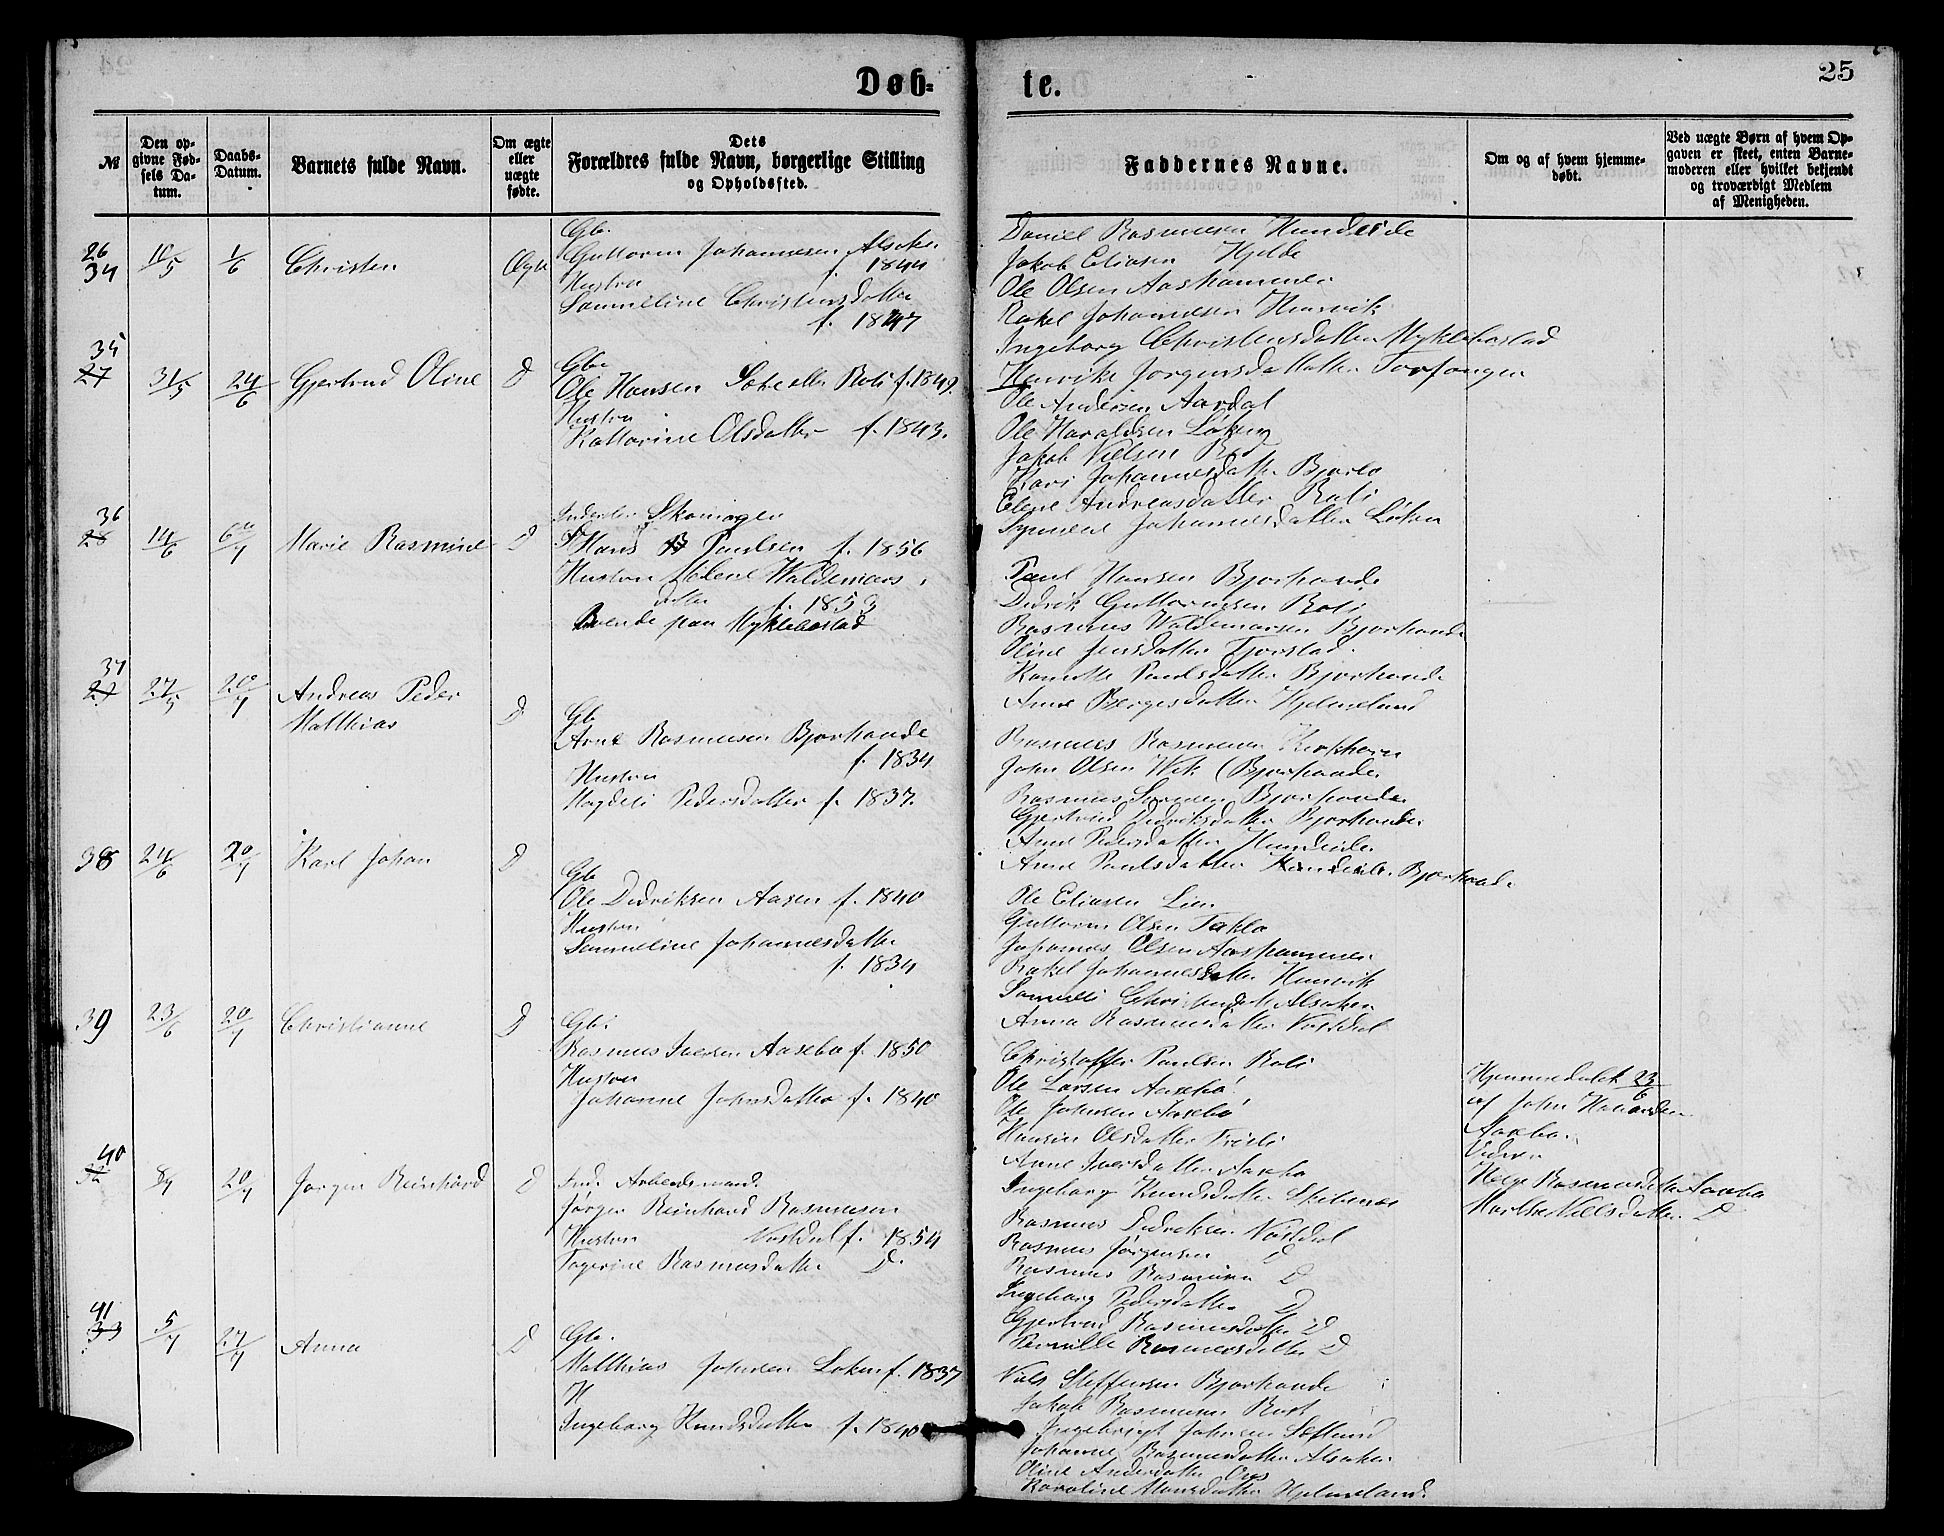 Døb-
te.
25
№
Den op-
givne Fød-
sels Da-
tum.
Daabs-
Datum.
Barnets fulde Navn.
Om ægte
eller
uægte
fødte.
Dets
Forældres fulde Navn, borgerlige Stilling
og Opholdssted.
Faddernes Navne.
Om og af hvem hjemme-
døbt.
Ved uægte Børn af hvem Op-
gaven er skeet, enten Barne-
moderen eller hvilket bekjendt
og troværdigt Medlem
af Menigheden.
26
34
1/6
Christen
Ægte
Gb.
Guttorm Johannesen Alsaker
f. 1844
Hustru
Samueline Christensdatter
f. 1847
Daniel Rasmusen Hundeide
Jakob Eliasen Hjelde
Ole Olsen Aashammer
Rakel Johannesen Henrik
Ingeborg Christensdatter Myklebostad
35
27
31/5
24/6
Gjertrud Oline
D
Gbr
Ole Hansen eller Roti f. 1849.
Hustru
Kattarine Olsdatter f. 1843.
Henrike Jørgensdatter Torfanger
Ole Andersen Aardal
Ole Haraldsen Løken
Jakob Nielsen
Kari Johannesdatter Bjørlo
Elene Andreasdatter Roti
Synneve Johannesdatter Løken
36
28
14/6
6/7
Marie Rasmine
D
Skomager
Hans Paulsen f. 1856
Hustru Helene Waldemars
datter f. 1853
Boende paa Myklebostad
Paul Hansen Bjørhovde
Didrik Guttormsen Roti
Rasmus Waldemarsen Bjørhovde
Oline Jensdatter
Paulsdatter Bjørhovde
Anne Børgesdatter Hjelmeland
37
29
27/5
20/7
Andreas Peder
Matthias
D
Gb
Arne Rasmusen Bjørhovde
f. 1834
Hustru
Magdeli Pedersdatter f. 1837.
Rasmus Rasmusen
John Olsen Wik (Bjørhovde
Rasmus Bjørhovde
Gjertrud Didriksdatter Bjørhovde
Anne Pedersdatter Hundeide
Anne Paulsdatter Bjørhovde
38
24/6
20/7
Karl Johan
D
Gb
Ole Didriksen Aasen f. 1840
Hustru
Samueline Johannesdatter
f. 1834
Ole Eliasen Lien
Guttorm Olsen Taklo
Johannes Olsen Aashammer
Rakel Johannesdatter Henrik
Samueli Alsaker
Anna Rasmusdatter Nordal
39
23/6
20/7
Christianne
D
Gb.
Rasmus Iversen Aasebø f. 1850
Hustru
Johanne Johnsdatter f. 1840
Christoffer Paulsen Roti
Ole Larsen Aasebø
Ole Johnsen Aasebø
Olsdatter
Anne Iversdatter Aasebø
Ingeborg Knudsdatter
Hjemmedøbt 23/6
af John Hansen
Aasebø.
Vidner
Helge Rasmusdatter Aasebø
Marthe Nielsdatter D
40
32
8/7
20/7
Jørgen Reinhard
D
Ind. Arbeidsmand.
Jørgen Reinhard Rasmusen
Hustru Nordal f. 1854
Rasmusdatter D.
Rasmus Didriksen Nordal
Rasmus Jørgensen D
Rasmus Rasmusen D
Ingeborg Pedersdatter D
Gjertrud Rasmusdatter D
Pernille Rasmusdatter D
41
33
5/7
27/7
Anna
D
Gb.
Matthias Johnsen Løken f. 1837
H
Ingeborg Knudsdatter f. 1840
Niels Steffensen Bjørhovde
Jakob Rasmusen
Ingebrigt Johnsen
Johanne Rasmusdatter Alsaker
Oline Andersdatter
Karoline Monsdatter Hjelmeland.